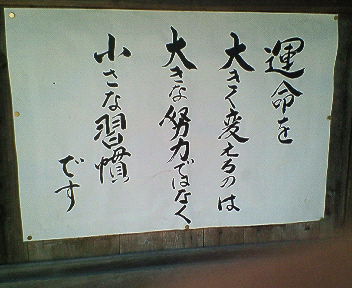 運命を
大きく変えるのは
大きな努力ではなく
小さな習慣
です